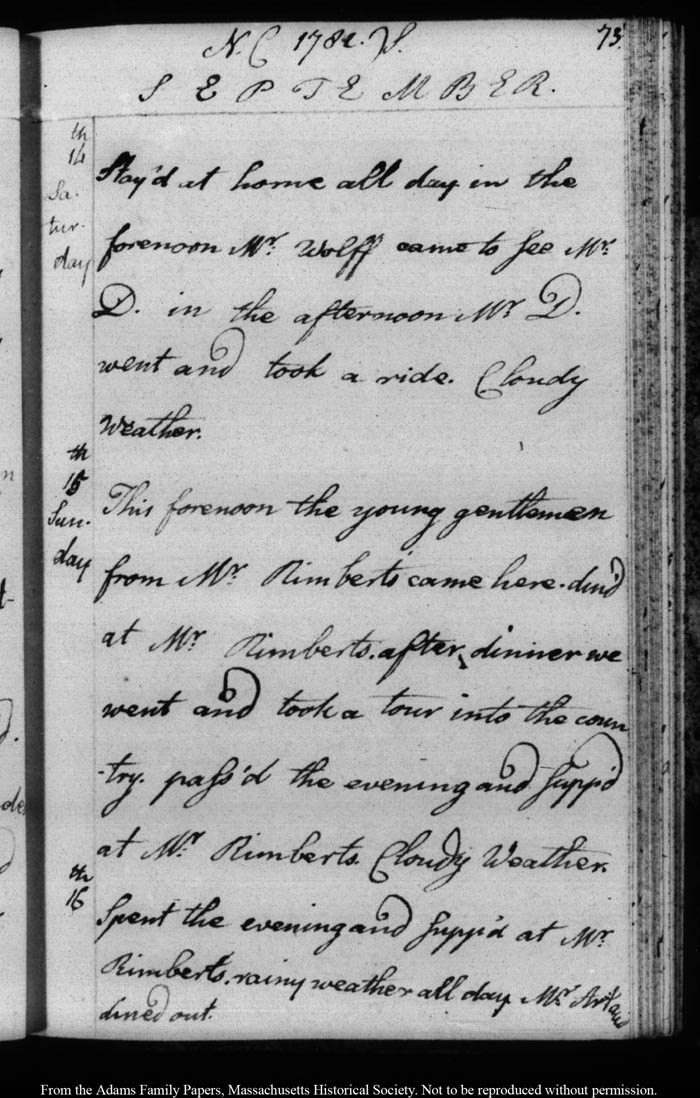 N. C 1782. S.
73.
S E P T E M B E R.
th
14
Sa.
tur.
day
Stay'd at home all day in the
forenoon Mr. Wolff came to see Mr.
D. in the afternoon Mr. D.
went and took a ride. Cloudy
Weather.
th
15
Sun.
day
This forenoon the young gentlemen
from Mr. Rimberts came here. din'd
at Mr. Rimberts. after, dinner we
went and took a tour into the coun
-try. pass'd the evening and supp'd
at Mr. Rimberts. Cloudy Weather.
th
16
Spent the evening and supp'd at Mr.
Rimberts. rainy weather all day Mr. Artaud
dined out.
From the Adams Family Papers, Massachusetts Historical Society. Not to be reproduced without permission.